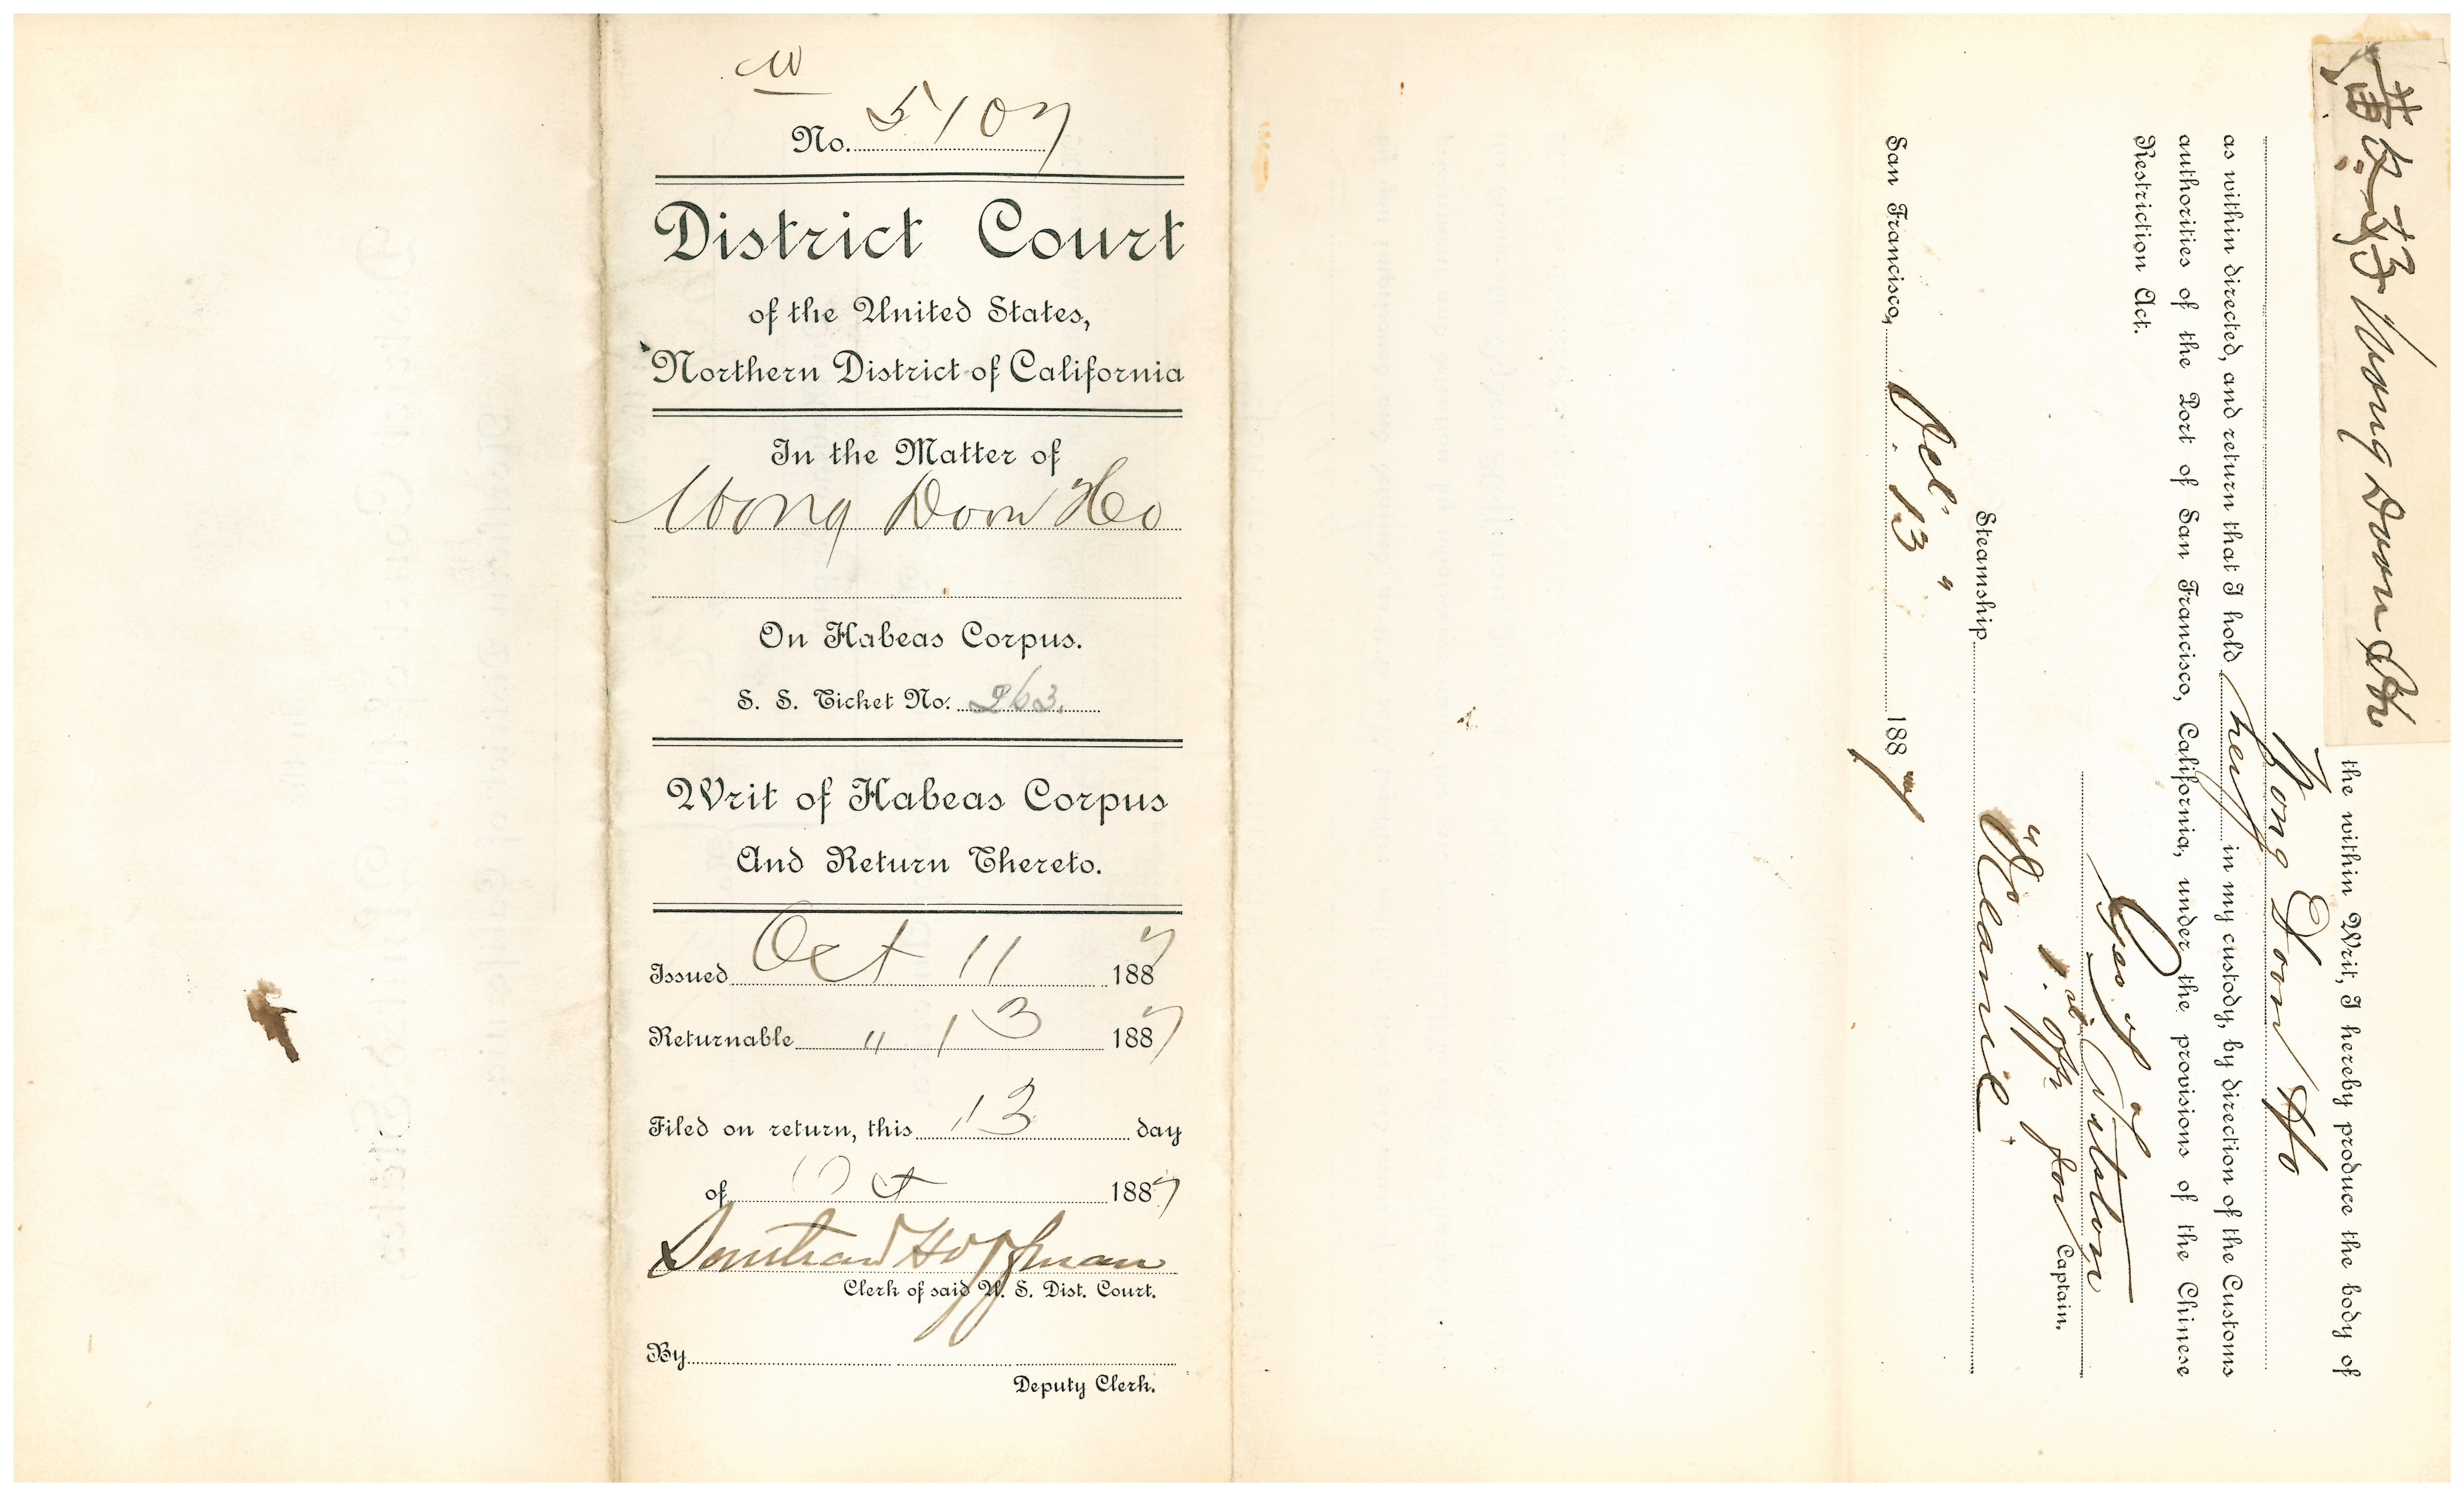 W
No. 5107
District Court
of the United States,
Northern District of California
In the Matter of
Wong Doon Ho
On Habeas Corpus.
S. S. Ticket No. 263.
Writ of Habeas Corpus
And Return Thereto.
Issued Oct 11 1887
Returnable " 13 1887
Filed on return, this 13 day
of Oct 1887
Southard Hoffman
Clerk of said U. S. Dist. Court.
By
Deputy Clerk.
黃 Wong Doon Ho
the within Writ, I hereby produce the body of
Wong Doon Ho
as within directed, and return that I hold her in my custody, by direction of the Customs
authorities of the Port of San Francisco, California, under the provisions of the Chinese
Restriction Act.
1st Offr for Captain.
Steamship
San Francisco, 13" 1887